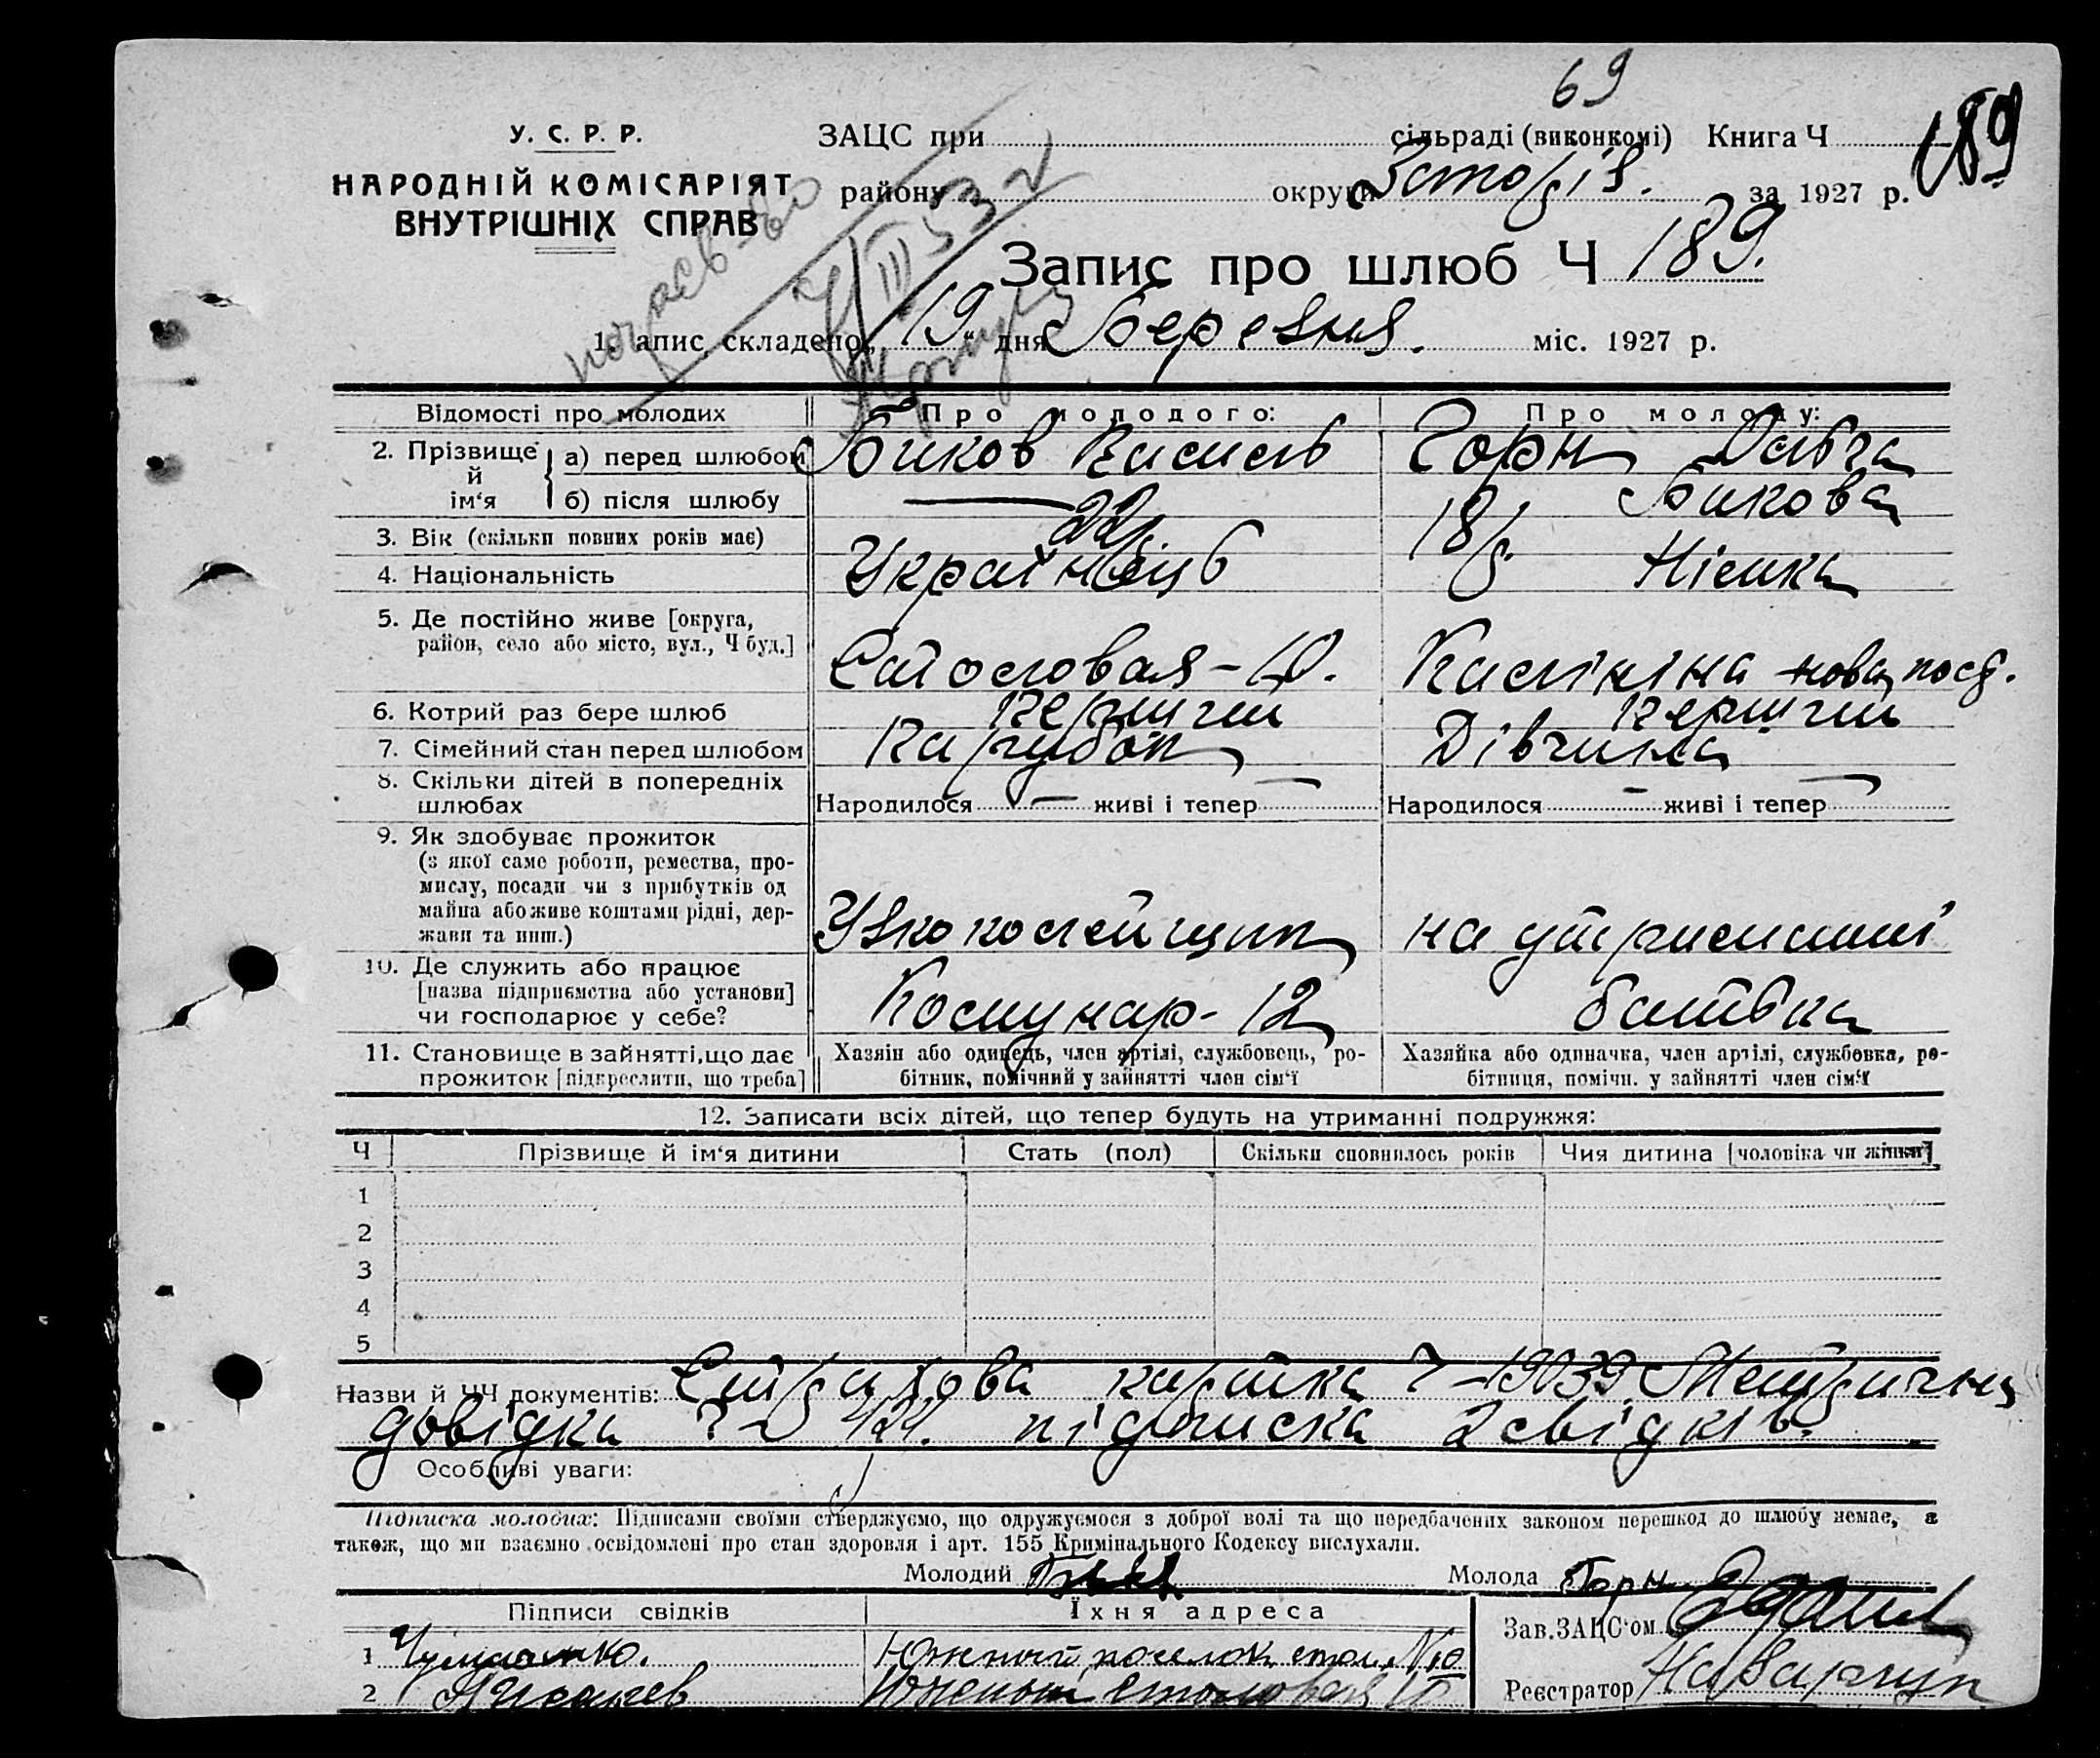 69
У. С. Р. Р.
НАРОДНІЙ КОМІСАРІЯТ
ВНУТРІШНІХ СПРАВ
ЗАЦС при сільраді (виконкомі) Книга Ч 189
району округи за 1927 р.
Запис про шлюб Ч 189.
1. Запис складено „19“ дня Березня. міс. 1927 р.
Відомості про молодих Про молодого: Про молоду:
2. Прізвище й ім‘я а) перед шлюбом Биков Василь Горн
б) після шлюбу — Бикова
3. Вік (скільки повних років має) 22 18
4. Національність Українець Німка
5. Де постійно живе [округа,
район, село або місто, вул., Ч буд.] Столовая – 10. Калініна нова
6. Котрий раз бере шлюб перший перший
7. Сімейний стан перед шлюбом Парубок Дівчина
8. Скільки дітей в попередніх
шлюбах Народилося — живі і тепер — Народилося — живі і тепер —
9. Як здобуває прожиток
(з якої саме роботи, ремества, про-
мислу, посади чи з прибутків од
майна або живе коштами рідні, дер-
жави та инш.) на утриманні
10. Де служить або працює
[назва підприємства або установи]
чи господарює у себе? Комунар - 12 батька
11. Становище в зайнятті, що дає
прожиток [підкреслити, що треба]
Хазяін або одинець, член артілі, службовець, ро-
бітник, помічний у зайнятті член сім‘ї
Хазяйка або одиначка, член артілі, службовка, ро-
бітниця, помічн. у зайнятті член сім‘ї
12. Записати всіх дітей, що тепер будуть на утриманні подружжя:
Ч Прізвище й ім‘я дитини Стать (пол) Скільки сповнилось років Чия дитина [чоловіка чи жінки]
1
2
3
4
5
Назви й ЧЧ документів: Страхова картка Ч – 19039 Метрична
довідка Ч підписка 2 свідків.
Особливі уваги:
Підписка молодих: Підписами своїми стверджуємо, що одружуємося з доброї волі та що передбачених законом перешкод до шлюбу немає, а
також, що ми взаємно освідомлені про стан здоровля і арт. 155 Кримінального Кодексу вислухали.
Молодий Молода Горн
Підписи свідків Їхня адреса Зав.ЗАЦС‘ом
1 Южный поселок стол. №10
2 Южный Столовая 10 Реєстратор